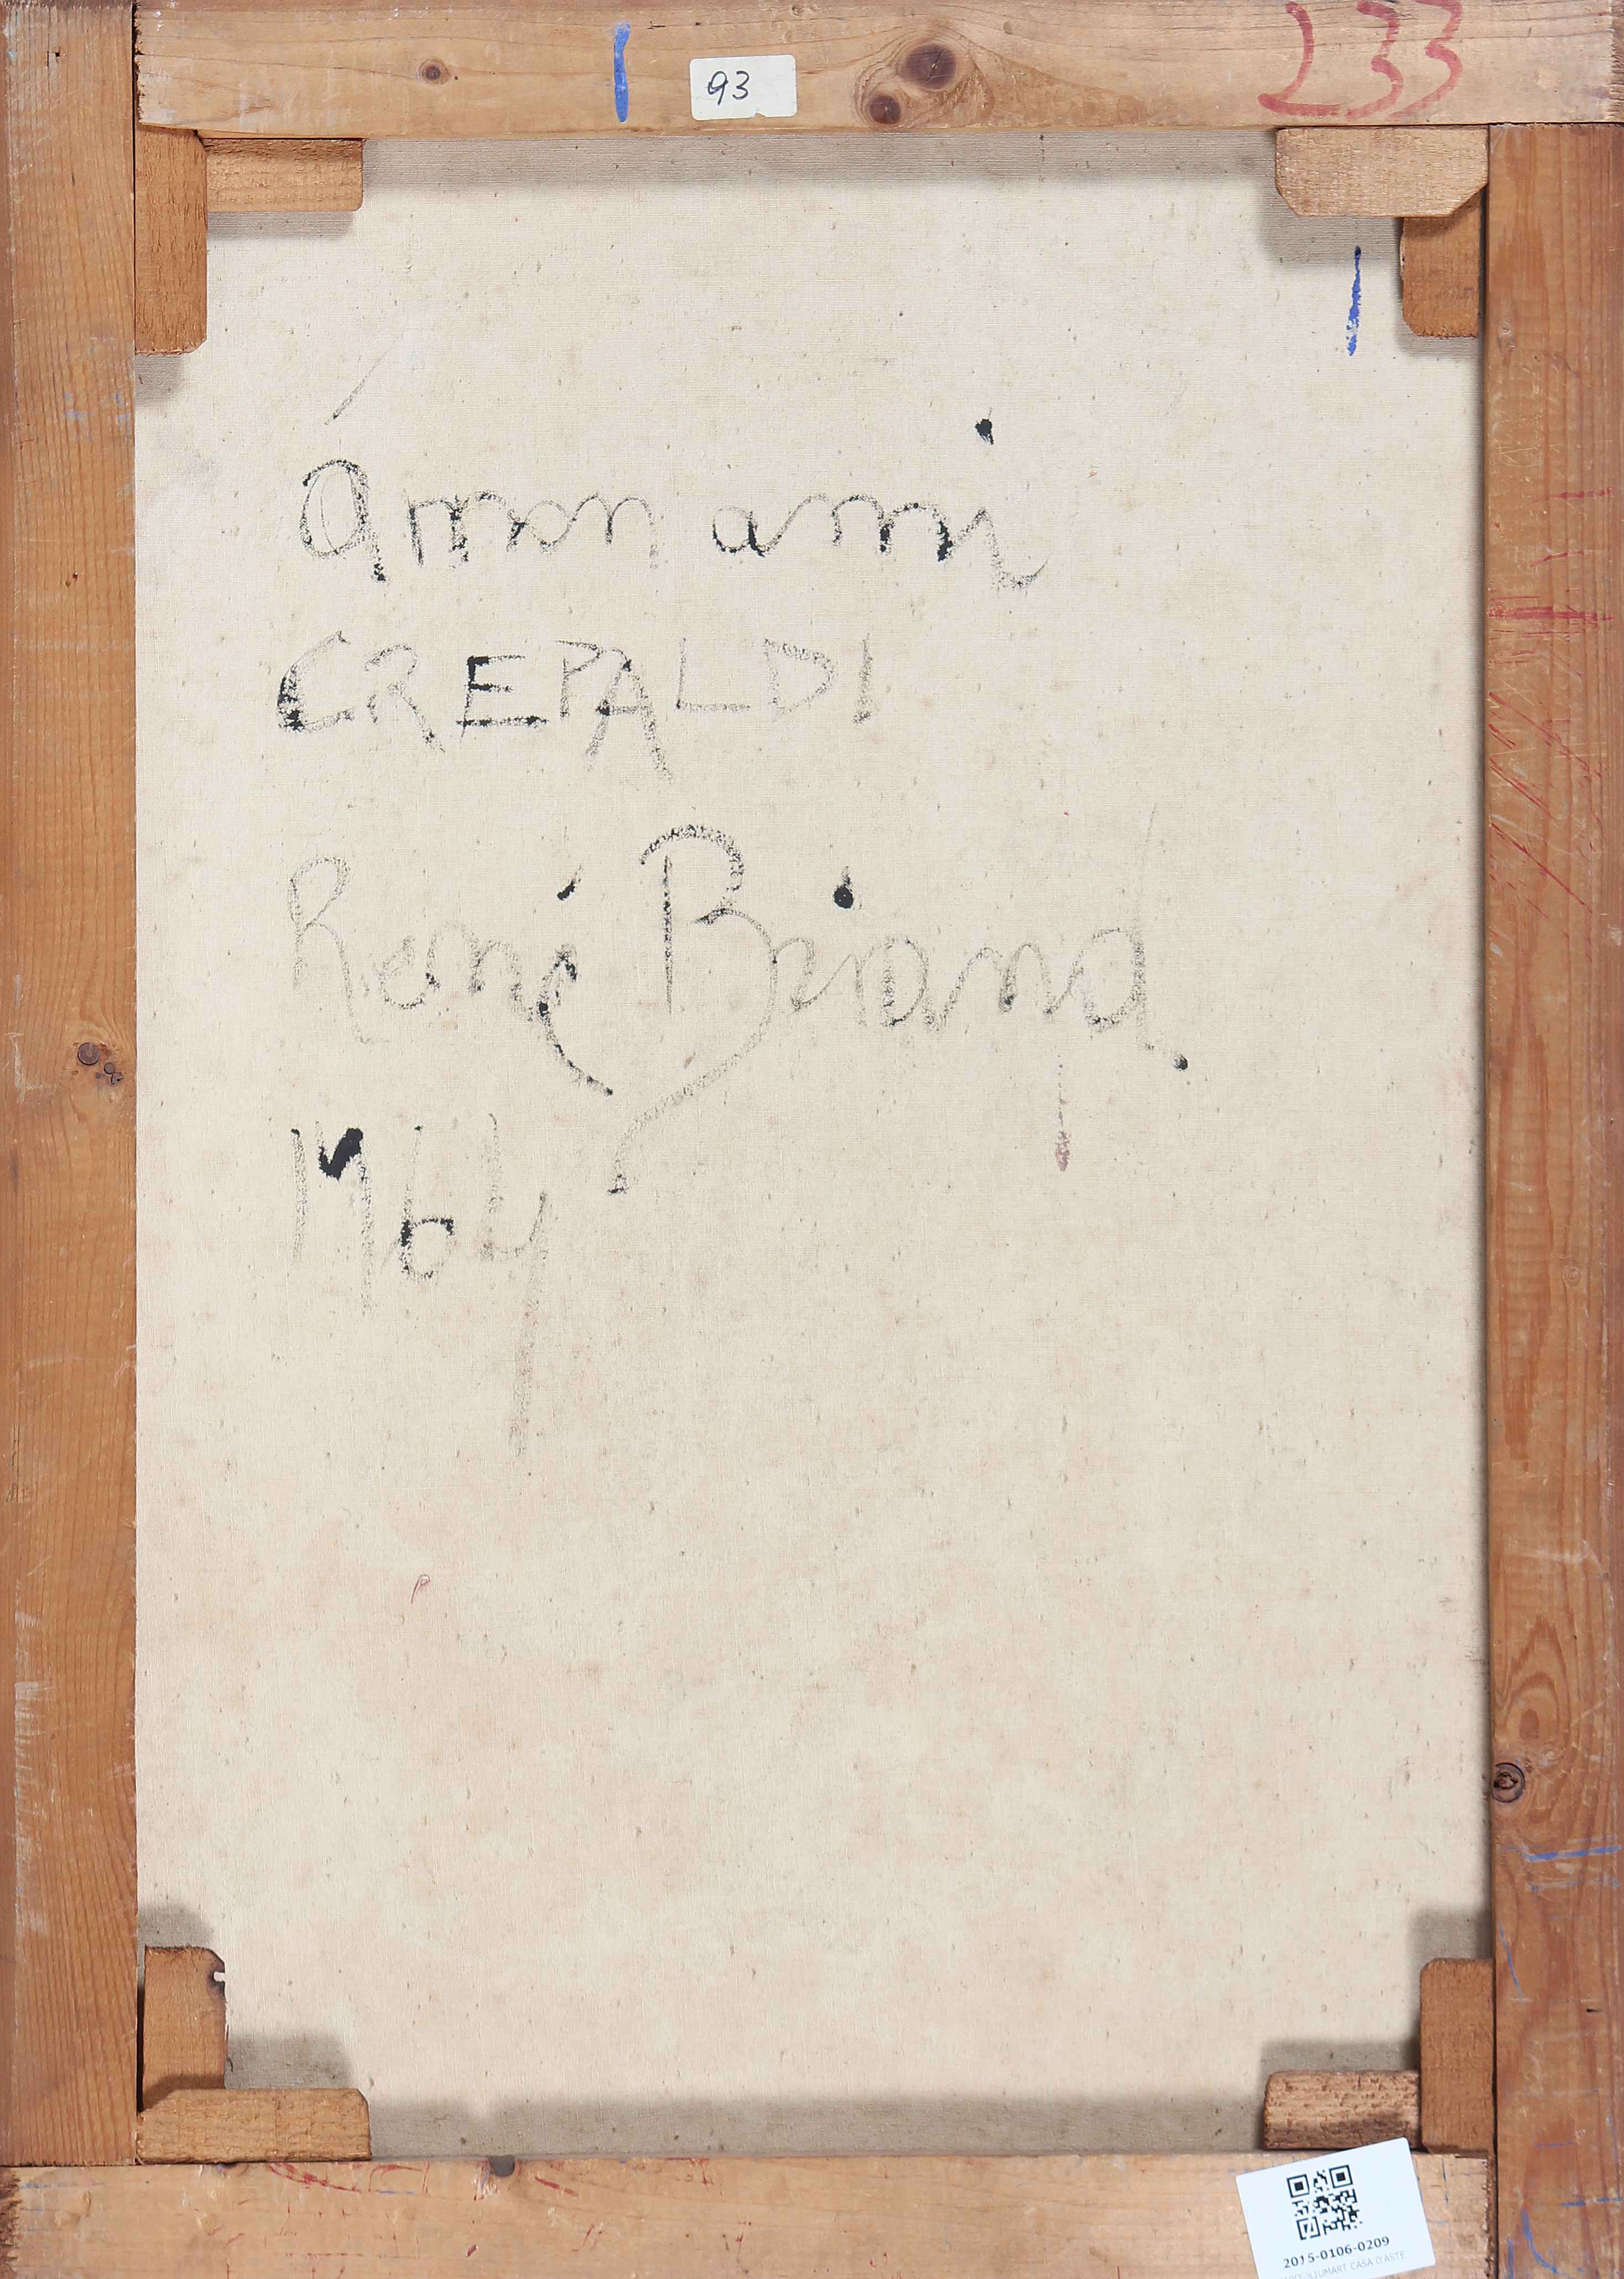 1
93
233
1
à mon ami
CREPALDI
René Briand.
2015-0106-0209
CASA D'ASTE